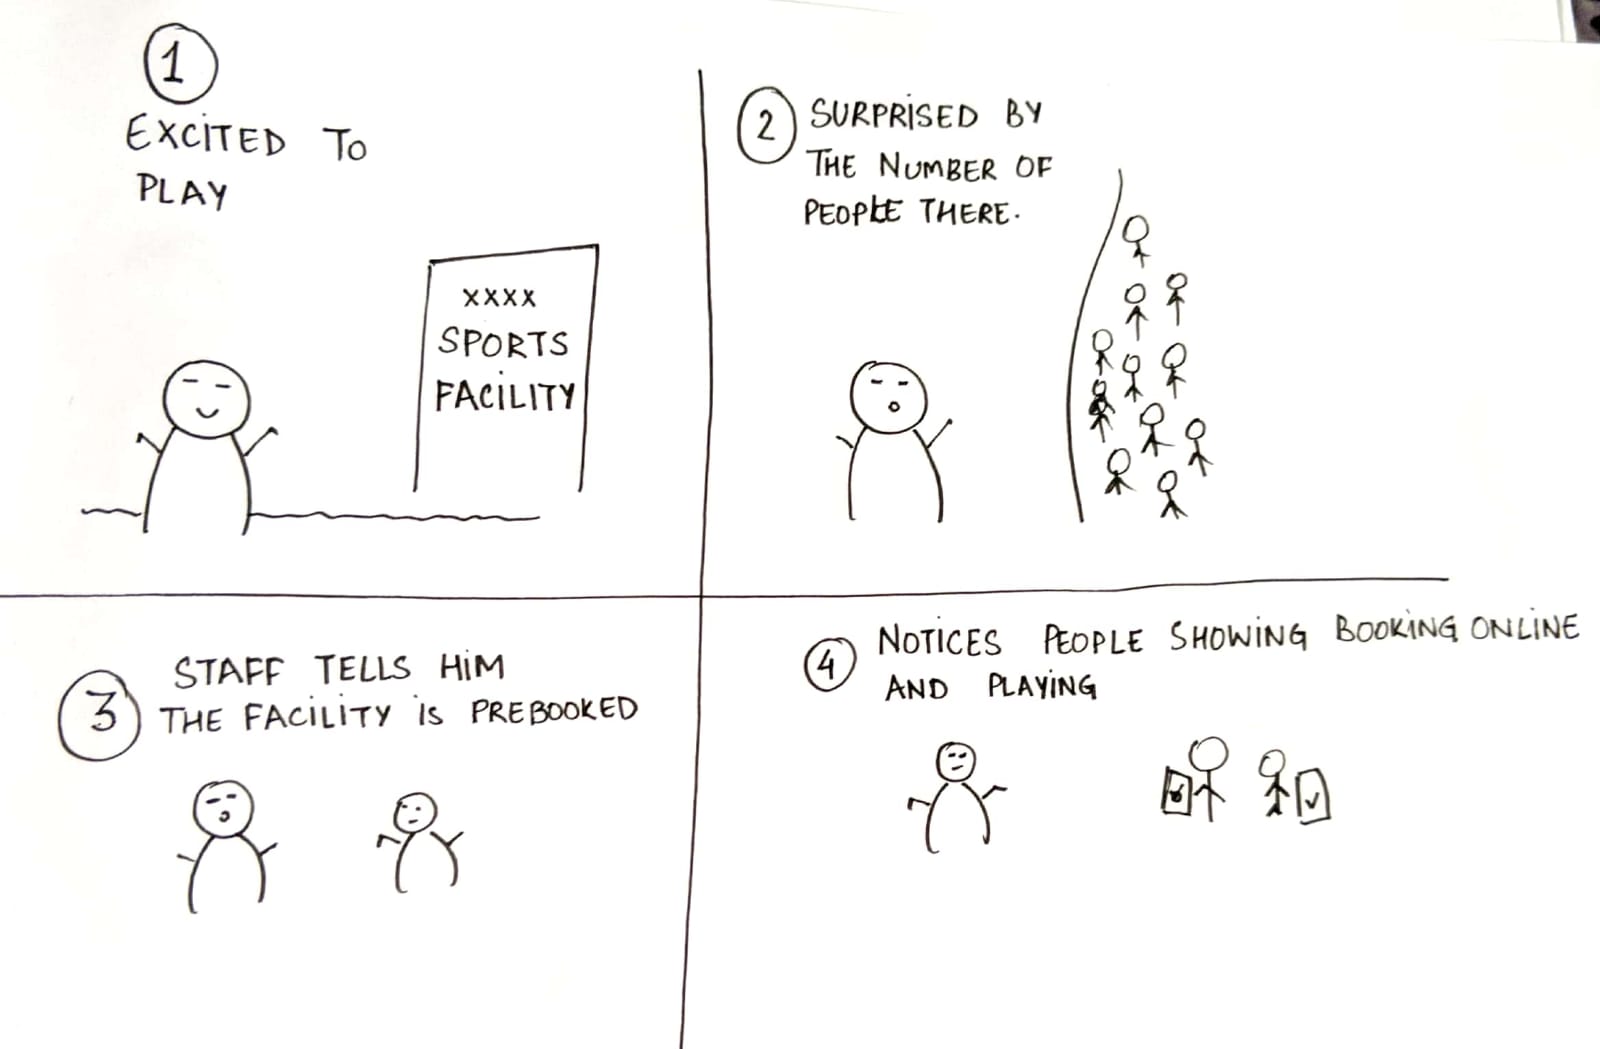 1
EXCITED TO
PLAY
XXXX
SPORTS
FACILITY
2
SURPRISED BY
THE NUMBER OF
PEOPLE THERE.
3
STAFF TELLS HIM
THE FACILITY IS PREBOOKED
4
NOTICES PEOPLE SHOWING BOOKING ONLINE
AND PLAYING